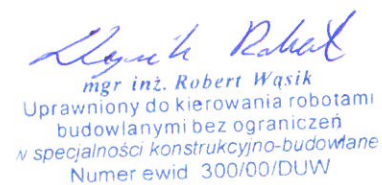 Wąsik Robert
mgr inż. Robert Wąsik
Uprawniony do kierowania robotami
budowlanymi bez ograniczeń
w specjalności konstrukcyjno-budowlane
Numer ewid 300/00/DUW